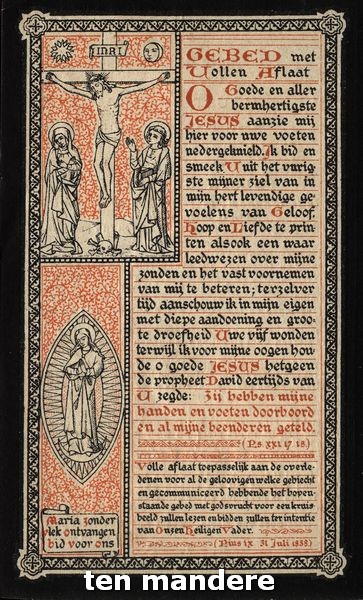 INRI
GEBED met
Vollen Aflaat
O Goede en aller
bermhertigste
JESUS aanzie mij
hier voor uwe voeten
nedergeknield. Ik bid en
smeek U uit het vurig
ste mijner ziel van in
mijn hert levendige ge
voelens van Geloof.
Hoop en Liefde te prin
ten alsook een waar
leedwezen over mijne
zonden en het vast voornemen
van mij te beteren; terzelver
tijd aanschouw ik in mijn eigen
met diepe aandoening en groo-
te droefheid Uwe vijf wonden
terwijl ik voor mijne oogen hou
de o goede JESUS hetgeen
de propheet David eertijds van
U zegde: Zij hebben mijne
handen en voeten doorboord
en al mijne beenderen geteld.
(Ps. XXI. 17 18.)
Volle aflaat toepasselijk aan de overle-
denen voor al de geloovigen welke gebiecht
en gecommuniceerd hebbende het boven-
staande gebed met godsvrucht voor een kruis
beeld zullen lezen en bidden zullen ter intentie
van Onzen Heiligen Vader.
(Pius IX 31 Juli 1858.)
Maria zonder
vlek ontvangen
bid voor ons
ten mandere